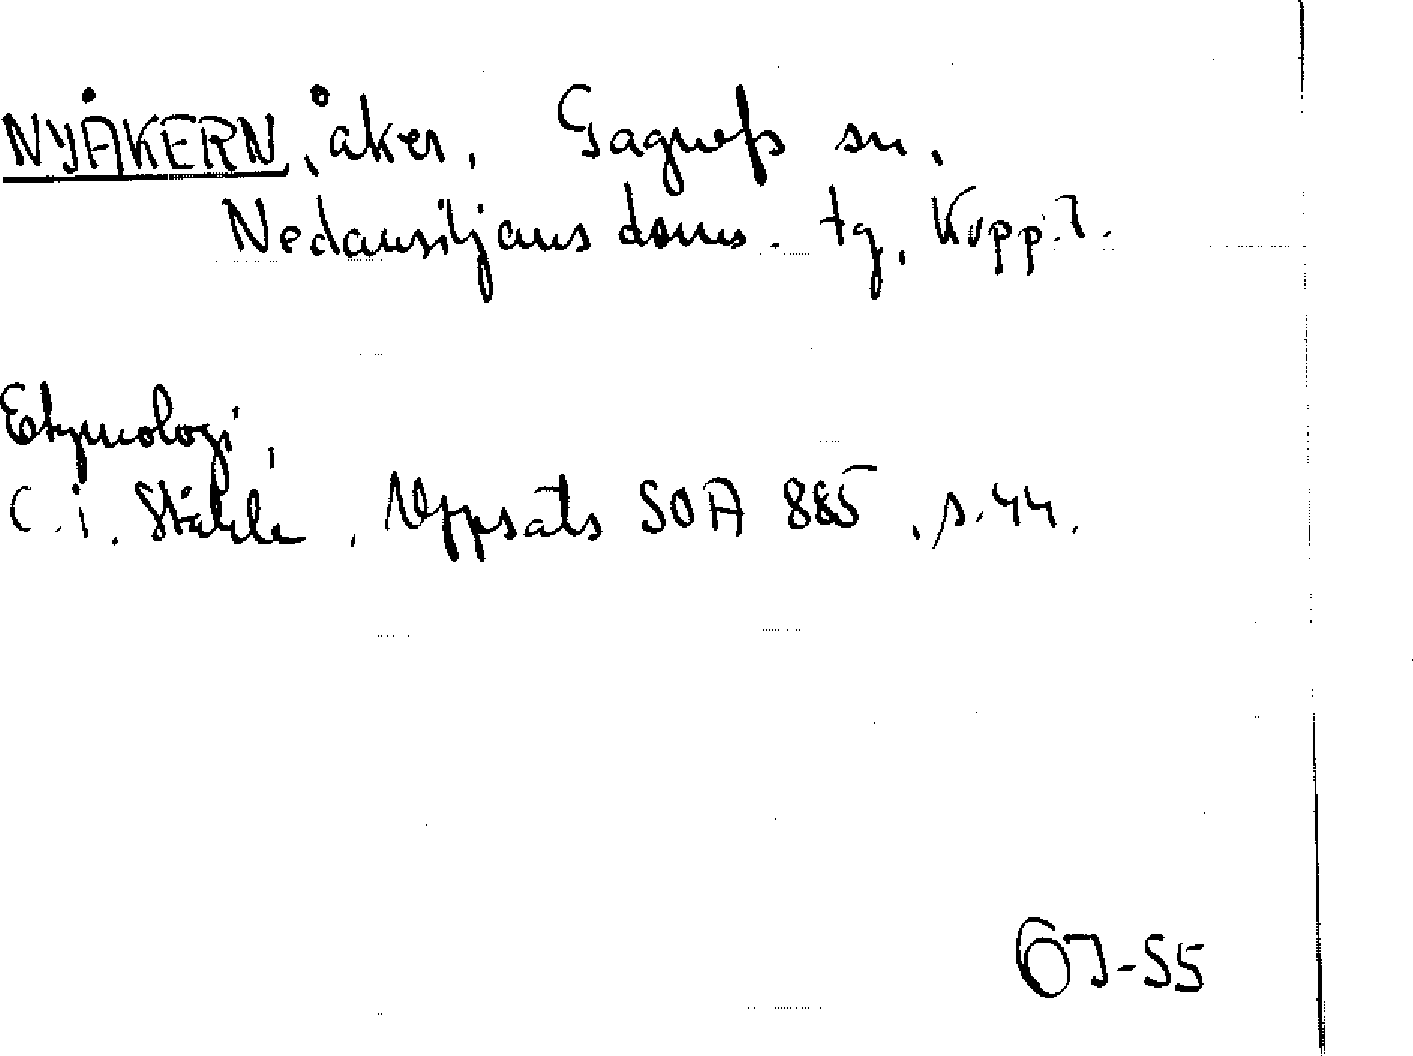 NYÅKERN, åker, Gagnefs sn,
Nedansiljans doms. tg, Kopp.l.
Etymologi,
C.i. Ståhle, Uppsats SOA 885, s.44.
ÖJ-55